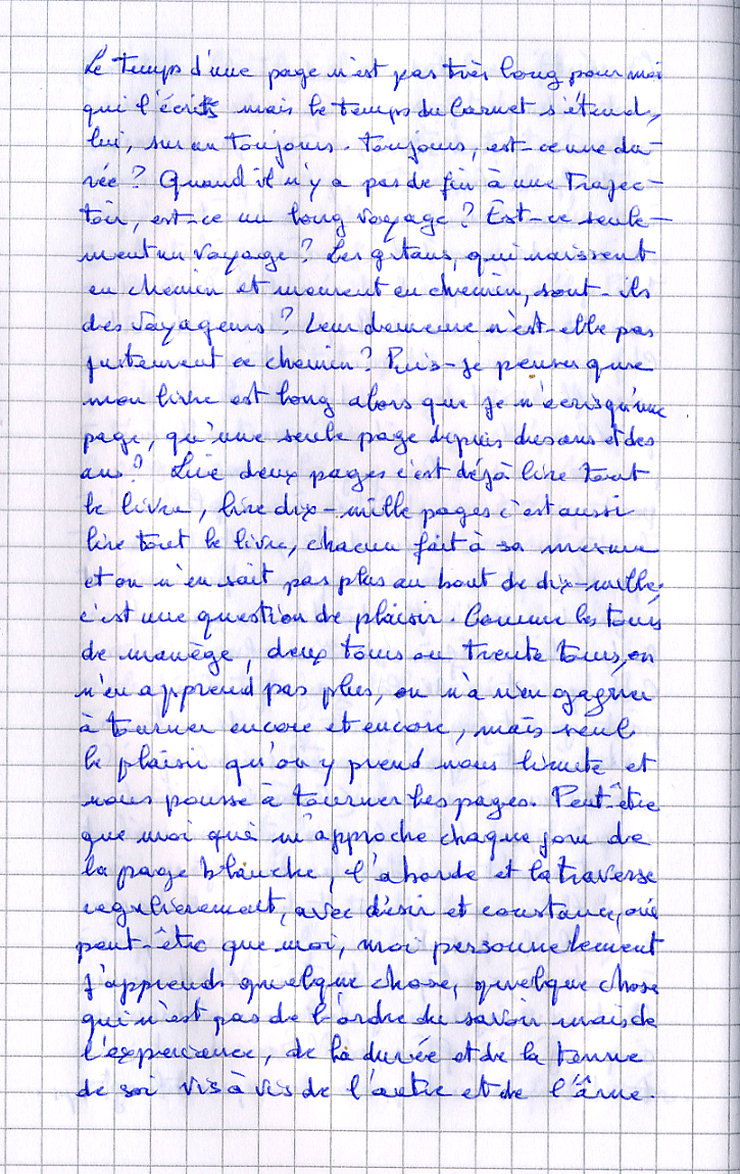 Le temps d'une page n'est pas très long pour moi
qui l'écrits mais le temps du carnet s'étend,
lui, sur un toujours. Toujours, est-ce une du-
rée ? Quand il n'y a pas de fin à une trajec-
toir, est-ce un long voyage ? Est-ce seule-
ment un voyage ? Les gitans, qui naissent
en chemin et meurent en chemin, sont-ils
des voyageurs ? Leur demeure n'est-elle pas
justement ce chemin ? Puis-je penser que
mon livre est long alors que je n'écris qu'une
page, qu'une seule page depuis des ans et des
ans ? Lire deux pages c'est déjà lire tout
le livre, lire dix-mille pages c'est aussi
lire tout le livre, chacun fait à sa mesure
et on n'en sait pas plus au bout de dix-mille,
c'est une question de plaisir. Comme les tours
de manège, deux tours ou trente tours, on
n'en apprend pas plus, on n'a rien gagner
à tourner encore et encore, mais seul
le plaisir qu'on y prend nous limite et
nous pousse à tourner les pages. Peut-être
que moi qui m'approche chaque jour de
la page blanche, l'aborde et la traverse
regulièrement, avec désir et constance, oui
peut-être que moi, moi personnelement
j'apprends quelque chose, quelque chose
qui n'est pas de l'ordre du savoir mais de
l'experience, de la durée et de la tenue
de soi vis à vis de l'autre et de l'âme.